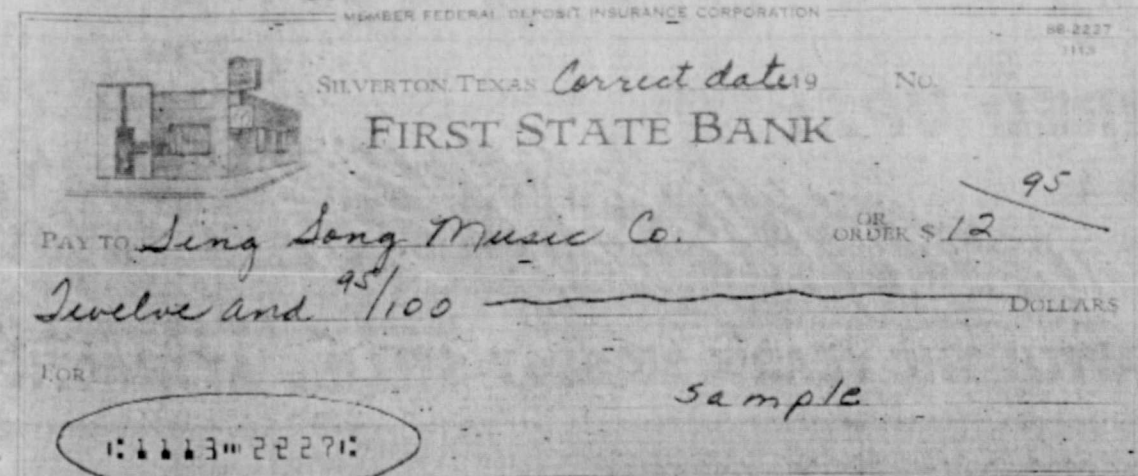 MEMBER FEDERAL DEPOSIT INSURANCE CORPORATION
88-2227
1113
SILVERTON, TEXAS Correct date 19 No.
FIRST STATE BANK
PAY TO Sing Song Music Co. OR ORDER $ 12 95
Twelve and 95/100 DOLLARS
FOR
sample
⑆1113⑉2227⑆